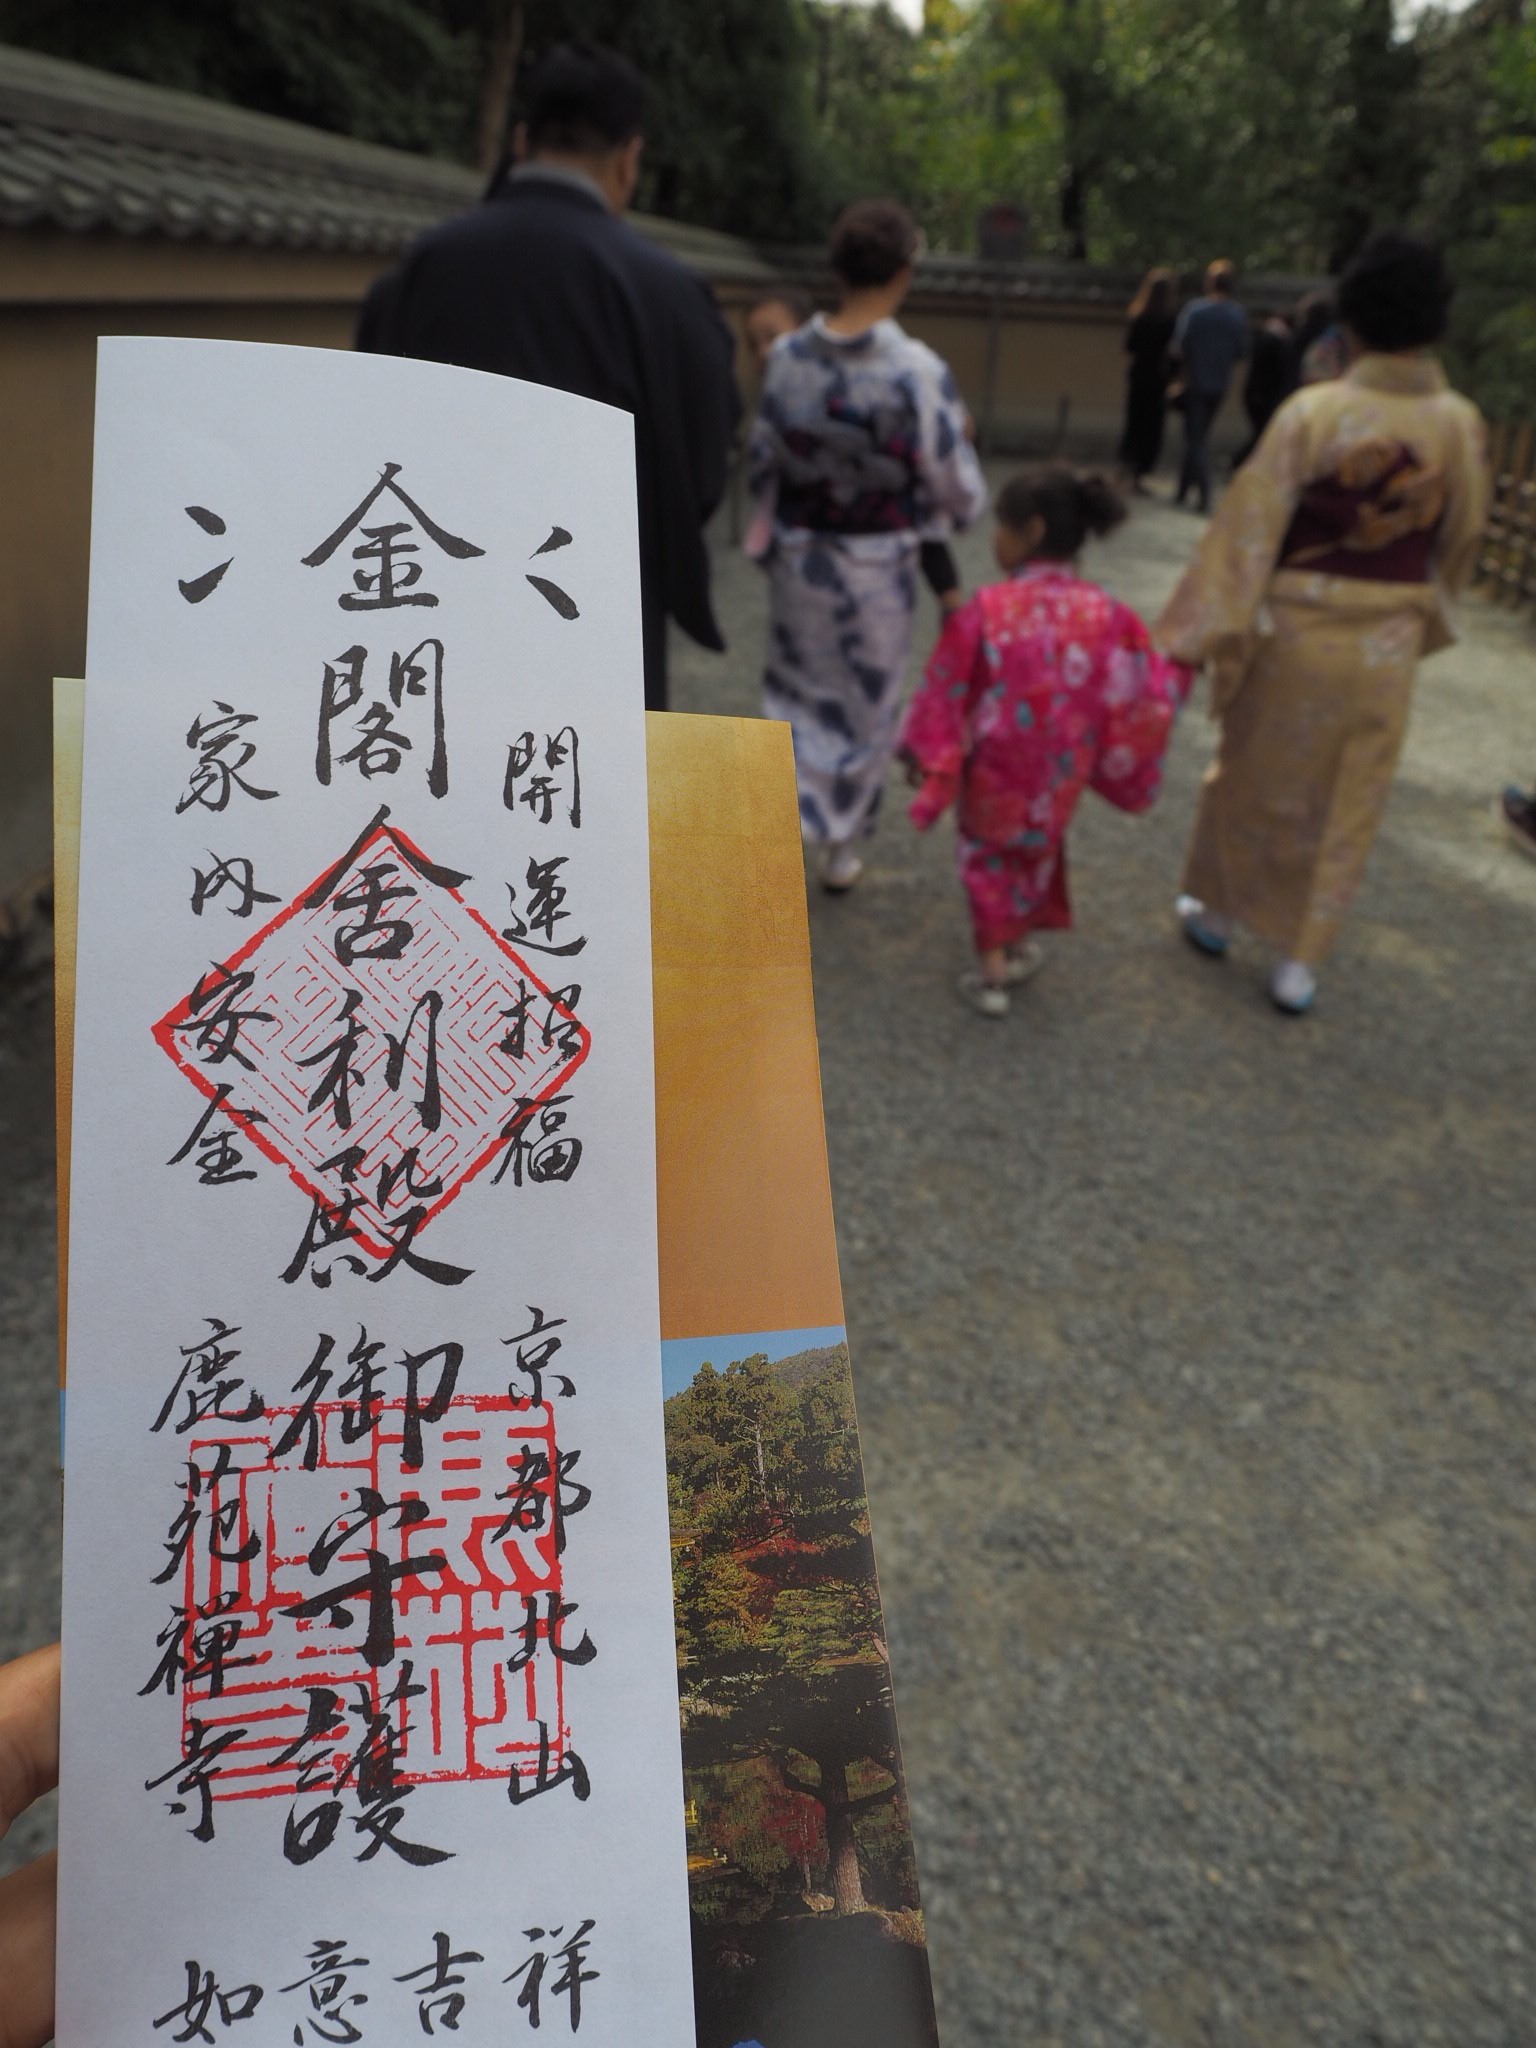 開運招福
京都北山
金閣舎利殿御守護
家内安全
鹿苑禅寺
祥吉意如